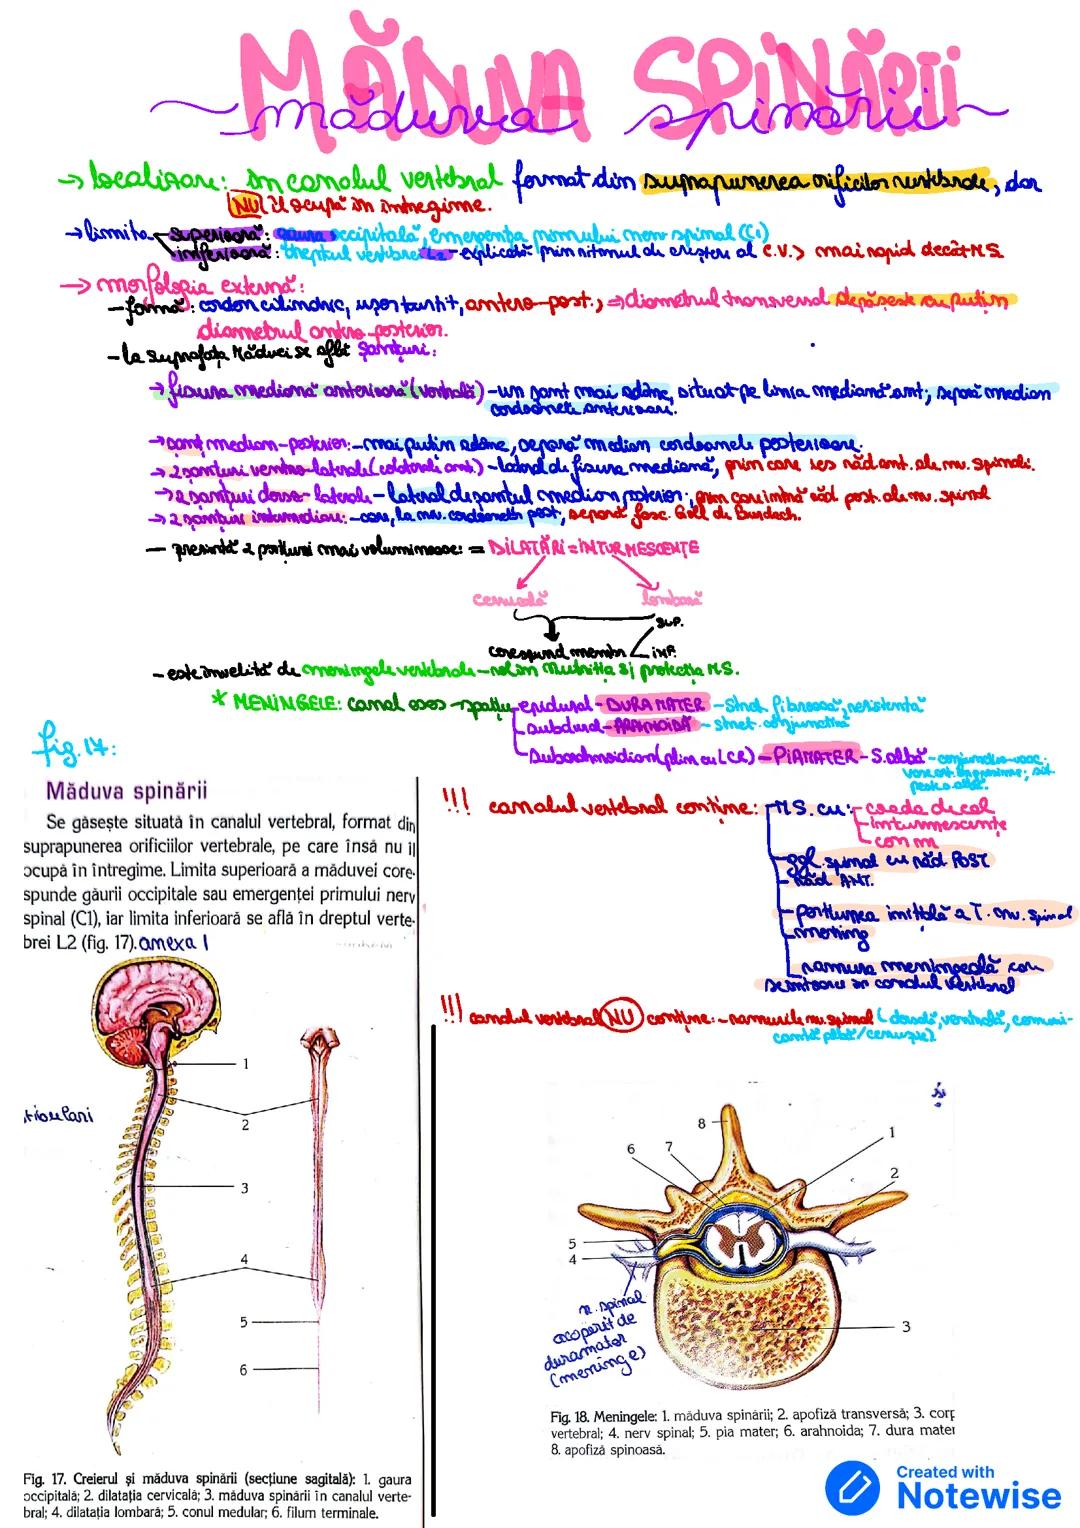 MĂDUVA SPINĂRII
măduva spinării
→ localizare: în canalul vertebral format din suprapunerea orificiilor vertebrale, dar
NU îl ocupă în întregime.
→ limita superioară: gaura occipitală, emergența primului nerv spinal (C1)
inferioară: dreptul vertebrei L2 - explicată prin ritmul de creștere al C.V. > mai rapid decât M.S.
→ morfologia externă:
- formă: cordon cilindric, ușor turtit, antero-post., ⇒ diametrul transversal depășește cu puțin
diametrul antero-posterior.
- la suprafața măduvei se află șanțuri:
→ fisura mediană anterioară (ventrală) - un șanț mai adânc, situat pe linia mediană ant; separă median
cordoanele anterioare.
→ șanț median-posterior: - mai puțin adânc, separă median cordoanele posterioare.
→ 2 șanțuri ventro-laterale (colaterali ant.) - lateral de fisura mediană, prin care ies răd. ant. ale nv. spinali.
→ 2 șanțuri dorso-laterale - lateral de șanțul median posterior, prin care intră răd post. ale nv. spinal
→ 2 șanțuri intermediare: - care, la niv. cordoanelor post, separă fasc. Goll de Burdach.
- prezintă 2 porțiuni mai voluminoase: = DILATĂRI = INTUMESCENȚE
cervicală lombară
corespund membr sup.
inf.
- este învelită de meningele vertebrale - rol în nutriția și protecția M.S.
* MENINGELE: canal osos - spațiu epidural - DURA MATER - struct. fibroasă, rezistentă
subdural - ARAHNOIDA - struct. conjunctivă
Subarahnoidian (plin cu LCR) - PIAMATER - S. albă - conjunctivo-vasc.
fig. 17:
Măduva spinării
Se găsește situată în canalul vertebral, format din
suprapunerea orificiilor vertebrale, pe care însă nu îl
ocupă în întregime. Limita superioară a măduvei core-
spunde găurii occipitale sau emergenței primului nerv
spinal (C1), iar limita inferioară se află în dreptul verte-
brei L2 (fig. 17). anexa 1
!!! canalul vertebral conține: M.S. cu: coada de cal
intumescențe
con m
- ggl. spinal cu răd POST
- răd ANT.
- porțiunea inițială a T. nv. spinal
- mening
ramura meningeală care
se întoarce în canalul vertebral
!!! canalul vertebral NU conține: - ramurile nv. spinal (dorsală, ventrală, comuni-
cantă albă/cenușie)
1
2
3
4
5
6
Fig. 17. Creierul și măduva spinării (secțiune sagitală): 1. gaura
occipitală; 2. dilatația cervicală; 3. măduva spinării în canalul verte-
bral; 4. dilatația lombară; 5. conul medular; 6. filum terminale.
8
6
7
1
2
5
4
3
n. spinal
acoperit de
duramater
(meninge)
Fig. 18. Meningele: 1. măduva spinării; 2. apofiză transversă; 3. corp
vertebral; 4. nerv spinal; 5. pia mater; 6. arahnoida; 7. dura mater
8. apofiză spinoasă.
Created with
Notewise